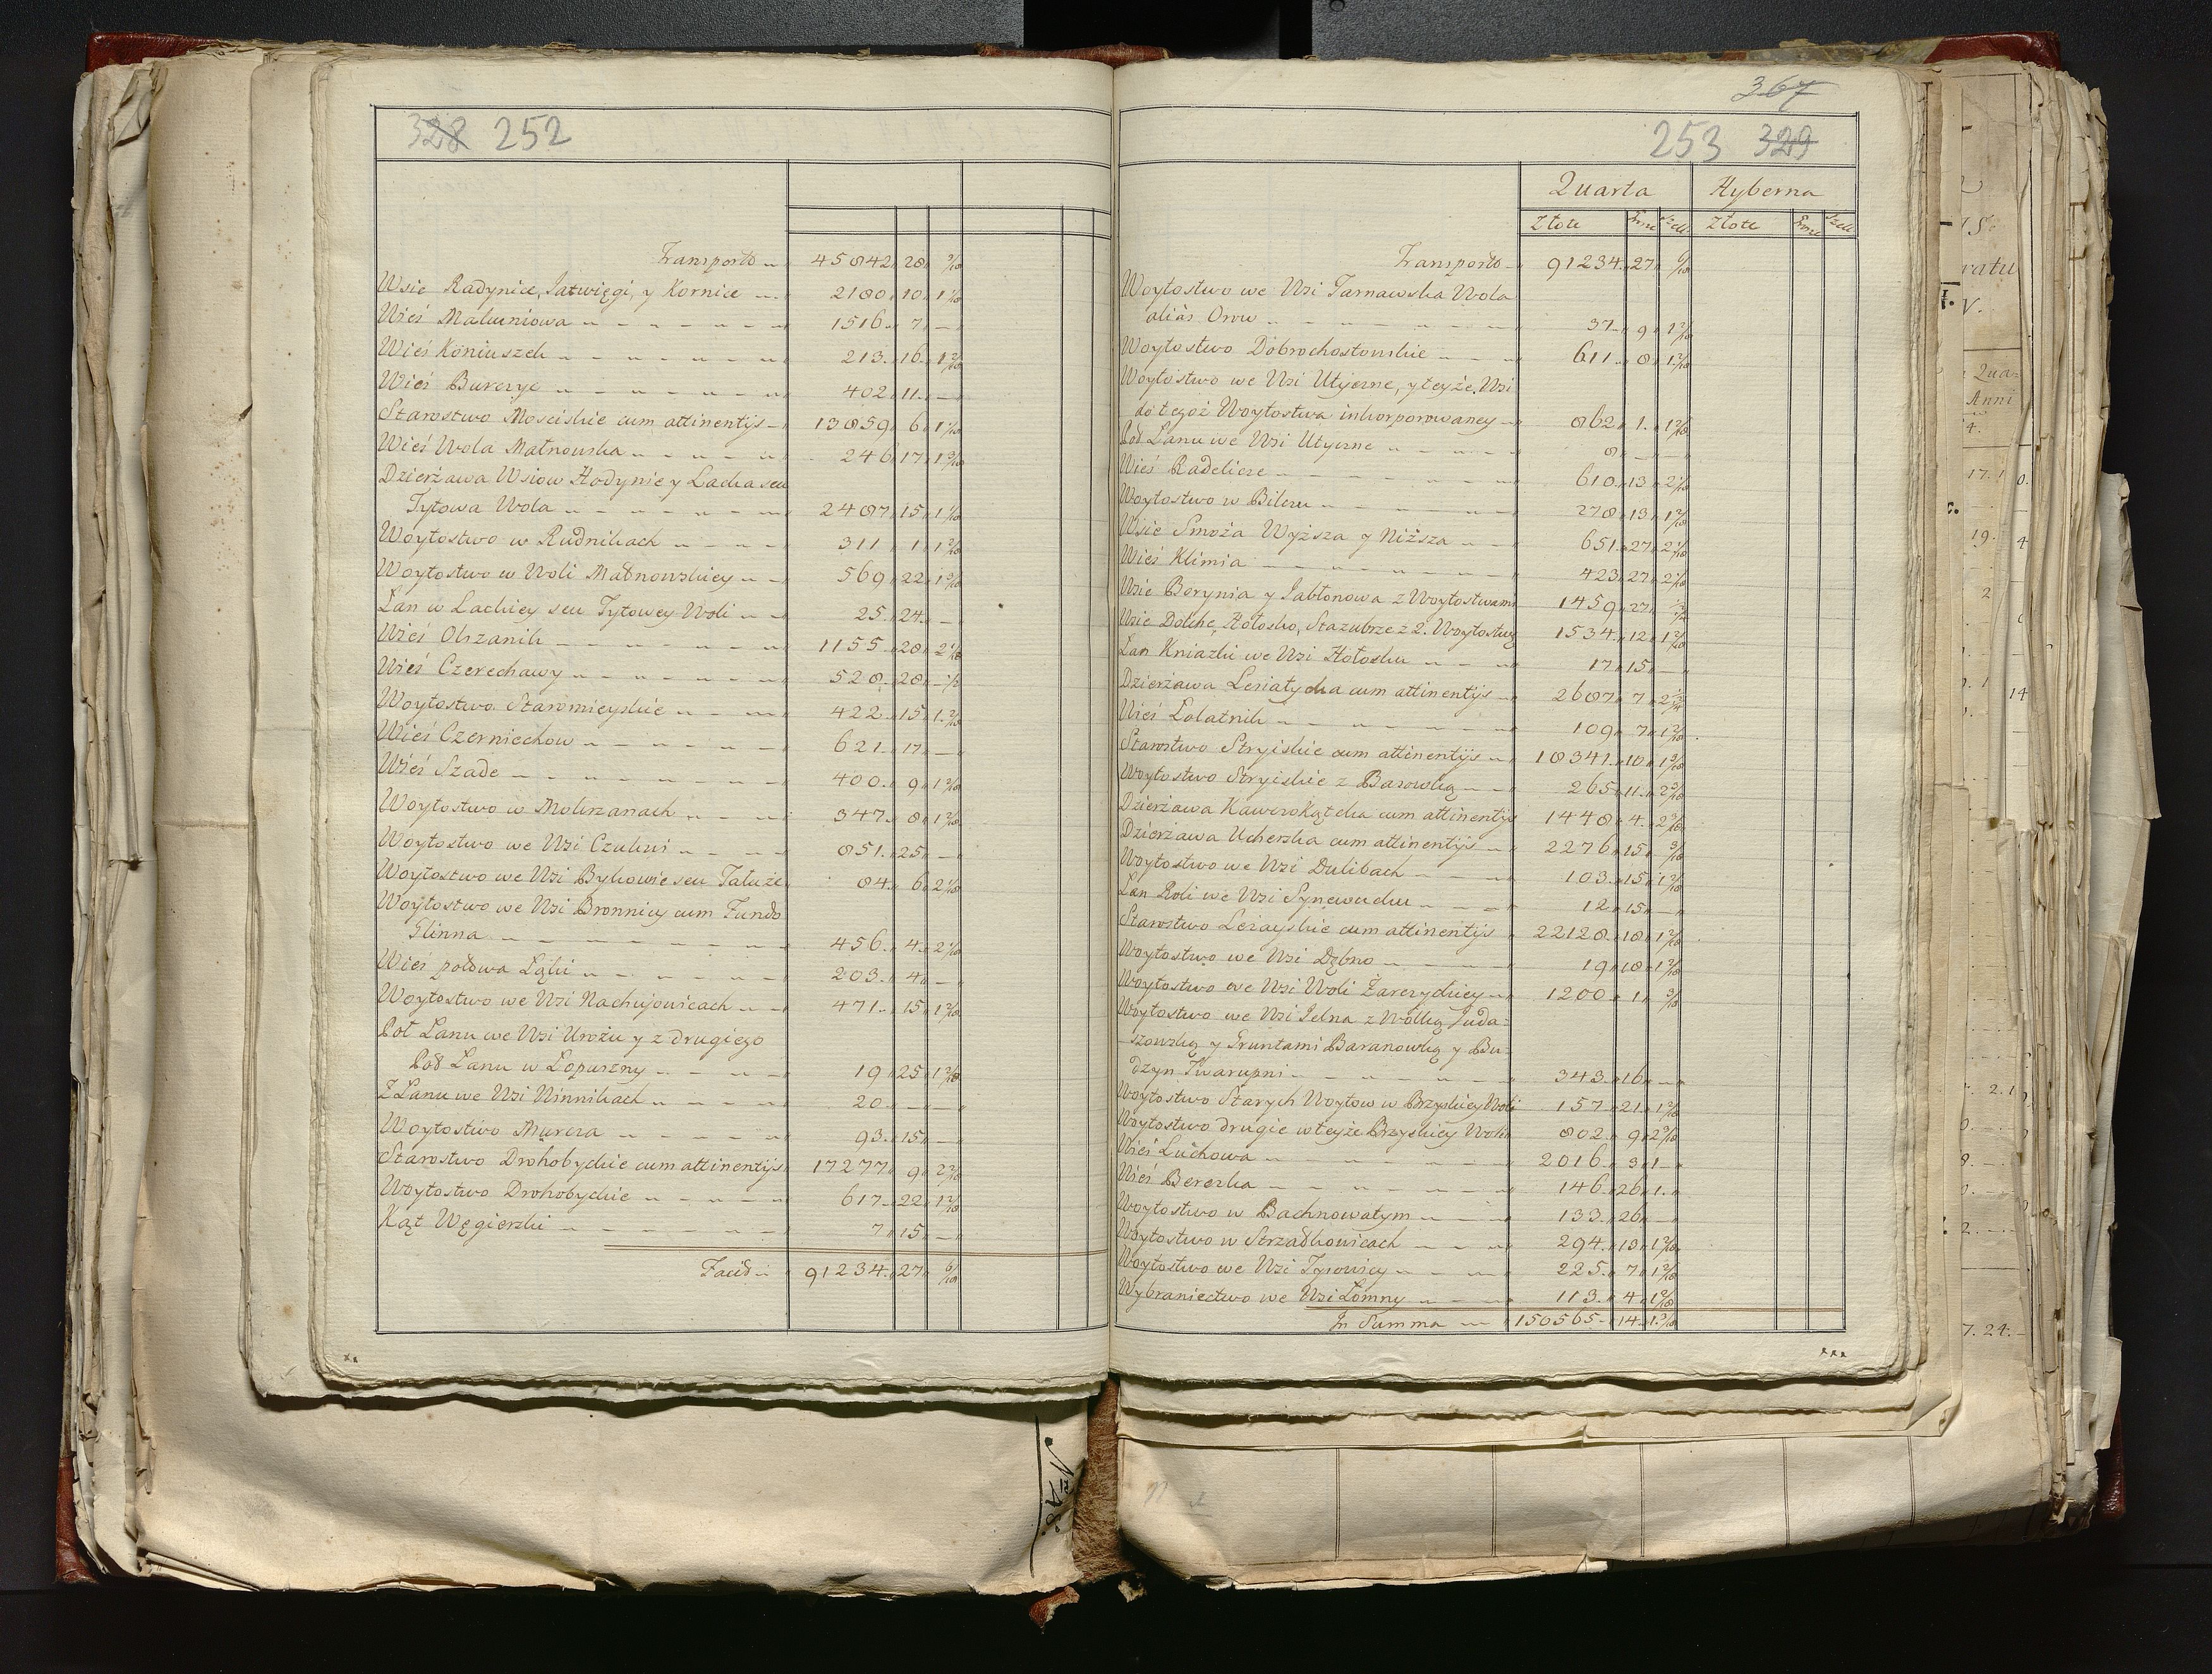 328 252
Transporto 45842 28 9/18
Wsie Radynice, Jatwięgi, y Kornice 2180 10 1
Wieś Makuniowa 1516 7 —
Wieś Koniuszek 213 16 1 2/18
Wieś Burczyc 402 11 —
Starostwo Mosciskie cum attinentijs 13859 6 1
Wieś Wola Małnowska 246 17 1
Dzierżawa Wsiow Hodynie y Lacka seu
Tytowa Wola 2487 15 1
Woytostwo w Rudnikach 311 1 1 2/18
Woytostwo w Woli Małnowskiey 569 22 1
Łan w Lackiey seu Tytowey Woli 25 24 —
Wieś Olszanik 1155 28 2
Wieś Czerechawy 528 28 — ½
Woytostwo Staromieyskie 422 15 1 2/18
Wieś Czerniechow 621 17 —
Wieś Szade 400 9 1
Woytostwo w Mokrzanach 347 8 1 2/18
Woytostwo we Wsi Czukwi 851 25 —
Woytostwo we Wsi Bykowie seu Tatuże 84 6 2
Woytostwo we Wsi Bronnicy cum Fundo
Glinna 456 4 2
Wieś połowa Łąki 203 4 —
Woytostwo we Wsi Nachujowicach 471 15 1 2/18
Poł Łanu we Wsi Urożu y z drugiego
Poł Łanu w Łopuszny 19 25 1
Z Łanu we Wsi Winnikach 20 — —
Woytostwo Murcza 93 15 —
Starostwo Drohobyckie cum attinentijs 17277 9 2 2/18
Woytostwo Drohobyckie 617 22 1 2/18
Kąt Węgierski 7 15 —
Facit 91234 27 6/18
367
253 329
Quarta Hyberna
Złote Grosze Szell Złote Grosze Szell
Transporto 91234 27 6/18
Woytostwo we Wsi Tarnawska Wola
alias Orow 37 9 1 2/18
Woytostwo Dobrochostowskie 611 8 1 2/18
Woytostwo we Wsi Utyczne, y teyże Wsi
do tegoż Woytostwa inkorporowaney 862 1 1 2/18
Poł Łanu we Wsi Utyczne 8 — —
Wieś Radelicze 610 13 2
Woytostwo w Bilczu 278 13 1 2/18
Wsie Smoża Wyższa y Niższa 651 27 2
Wieś Klimia 423 27 2
Wsie Borynia y Jabłonowa z Woytostwami 1459 27
Wsie Dołhe, Hołosko, 2. Woytostwy 1534 12 1 2/18
Łan Kniazki we Wsi Hołosku 17 15 —
Dzierżawa Lesiatycka cum attinentijs 2687 7 2
Wieś Lolatnik 109 7 1 2/18
Starostwo Stryiskie cum attinentijs 18341 10 1
Woytostwo Stryiskie z Basowką 265 11 2
Dzierżawa Kawczokątcka cum attinentijs 1448 4 2
Dzierżawa Ucherska cum attinentijs 2276 15 3/18
Woytostwo we Wsi Dulibach 103 15 1 2/18
Łan Roli we Wsi Synewucku 12 15 —
Starostwo Leżayskie cum attinentijs 22128 18 1 2/18
Woytostwo we Wsi Dębno 19 18 1 2/18
Woytostwo we Wsi Woli Żarczyckiey 1200 1 3/18
Woytostwo we Wsi Jelna z Wolką Juda-
szowską y Gruntami Baranowką y Bu-
dzyn Twarupni 343 16 —
Woytostwo Starych Woytow w Brzyskiey Woli 157 21 1 2/18
Woytostwo drugie w teyże Brzyskiey Woli 802 9 2
Wieś Luchowa 2016 3 1 —
Wieś Berezka 146 26 1
Woytostwo w Bachnowatym 133 26 —
Woytostwo w Strzałkowicach 294 13 1 2/18
Woytostwo we Wsi Tysowicy 225 7 1 2/18
Wybraniectwo we Wsi Łomny 113 4 1 2/18
In Summa 150565 14 1